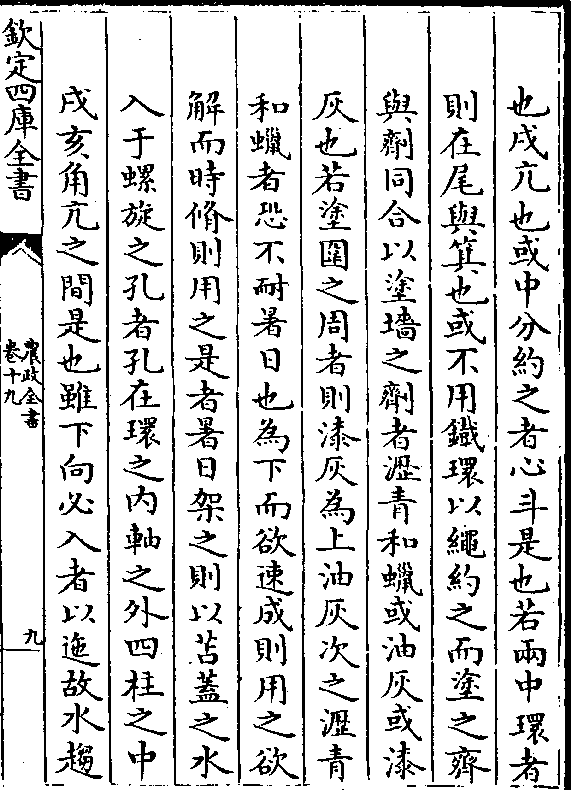 也戌亢也或中分約之者心斗是也若兩中環者
則在尾與箕也或不用鐡環以繩約之而塗之齊
與劑同合以塗墻之劑者瀝青和蠟或油灰或漆
灰也若塗圍之周者則漆灰為上油灰次之瀝青
和蠟者恐不耐暑日也為下而欲速成則用之欲
解而時脩則用之是者暑日架之則以苫蓋之水
入于螺旋之孔者孔在環之内軸之外四柱之中
戌亥角亢之間是也雖下向必入者以迤故水趨
欽定四庫全書
農政全書
卷十九
九